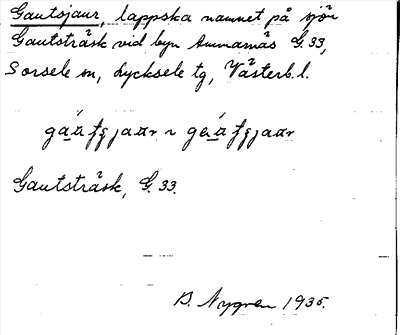 Gautsjaur, lappska namnet på sjön
Gautsträsk vid byn Ammarnäs G. 33,
Sorsele sn, Lycksele tg, Västerb. l.
Gautsträsk, G. 33.
B. Nygren 1935.